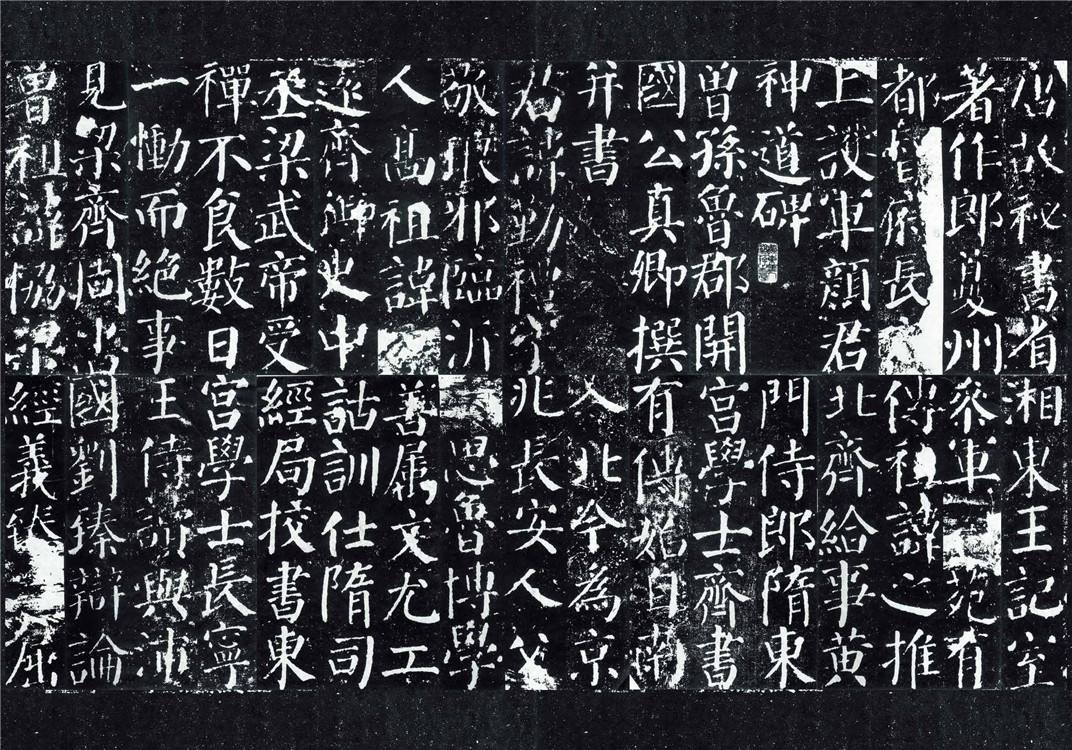 唐故祕書省
著作郎夔州
都督府長
上護軍顏君
神道碑
曾孫魯郡開
國公真卿撰
并書
君諱勤禮字
敬琅邪臨沂
人高祖諱
遠齊御史中
丞梁武帝受
禪不食數日
一慟而絕事
見梁齊周書
曾祖諱協梁
湘東王記室
參軍苑有
傳祖諱之推
北齊給事黃
門侍郎隋東
宮學士齊書
有傳始自南
入北今為京
兆長安人父
思魯博學
善屬文尤工
詁訓仕隋司
經局挍書東
宮學士長寧
王侍讀與沛
國劉臻辯論
經義臻屈